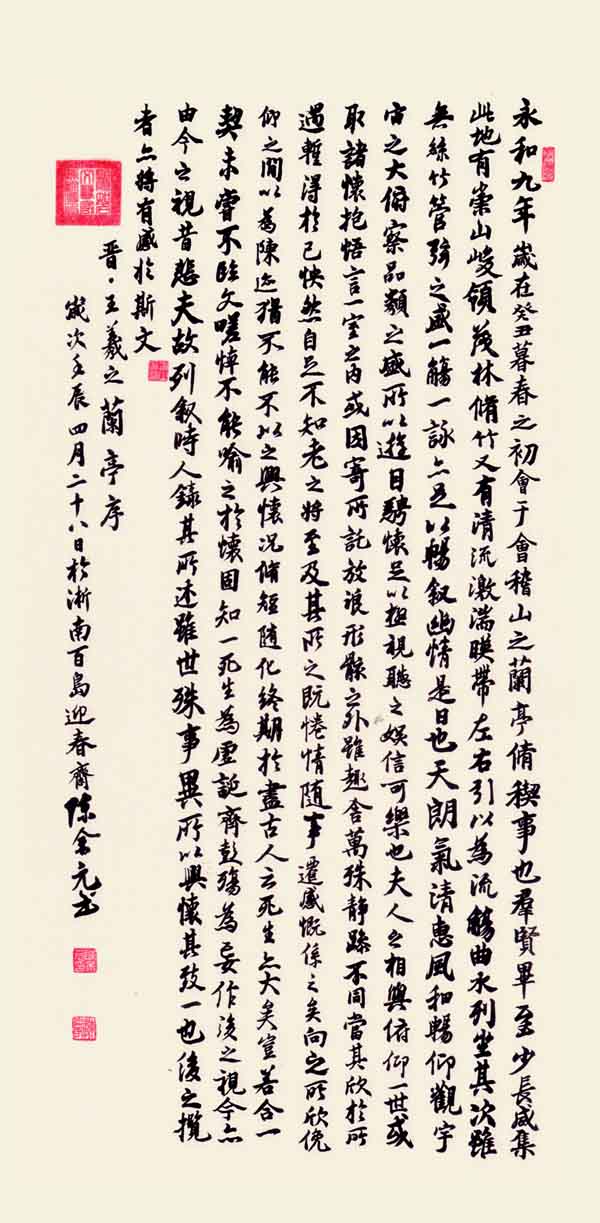 永和九年歲在癸丑暮春之初會于會稽山之蘭亭脩稧事也羣賢畢至少長咸集
此地有崇山峻領茂林脩竹又有清流激湍暎帶左右引以為流觴曲水列坐其次雖
無絲竹管弦之盛一觴一詠亦足以暢叙幽情是日也天朗氣清惠風和暢仰觀宇
宙之大俯察品類之盛所以遊目騁懷足以極視聽之娛信可樂也夫人之相與俯仰一世或
取諸懷抱悟言一室之內或因寄所託放浪形骸之外雖趣舍萬殊静躁不同當其欣於所
遇暫得於己怏然自足不知老之將至及其所之既惓情隨事遷感慨係之矣向之所欣俛
仰之間以為陳迹猶不能不以之興懷况脩短隨化終期於盡古人云死生亦大矣豈若合一
契未甞不臨文嗟悼不能喻之於懷固知一死生為虛誕齊彭殤為妄作後之視今亦
由今之視昔悲夫故列叙時人録其所述雖世殊事異所以興懷其致一也後之攬
者亦將有感於斯文
晋·王羲之蘭亭序
歲次壬辰四月二十八日於浙南百島迎春齋陳金元書